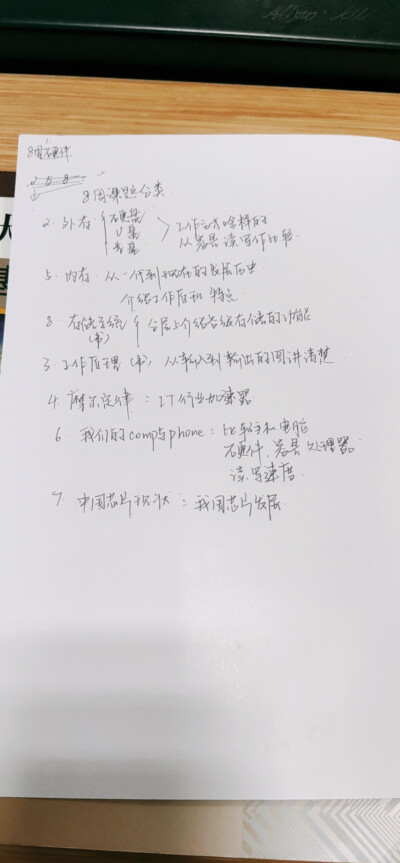 8周硬件
2 5 8
8周课题分类
2. 外存 { 硬盘 U盘 光盘 > 工作方式啥样的 从容易读写作比较
5. 内存. 从一代到现在的发展历史
介绍工作原理和特点
8. 存储系统 { 分层上介绍各级存储的功能
(书)
3 工作原理(书) 从输入到输出的图讲清楚
4 摩尔定律:IT行业加速器
6 我们的comp与phone:比较手机和电脑
硬件,容量 处理器
读写速度.
7 中国芯片现状:我国芯片发展.